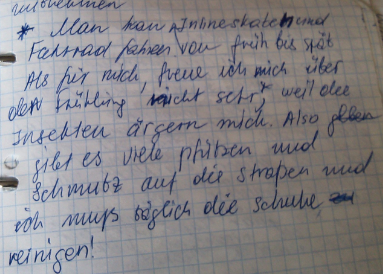 * Man kan Inlineskaten und
Fahrrad fahren von früh bis spät
Als für mich, freue ich mich über
den Frühling nicht sehr, weil die
Insekten ärgern mich. Also
gibt es viele pfützen und
Schmutz auf die straßen und
ich muß täglich die schuhe
reinigen!